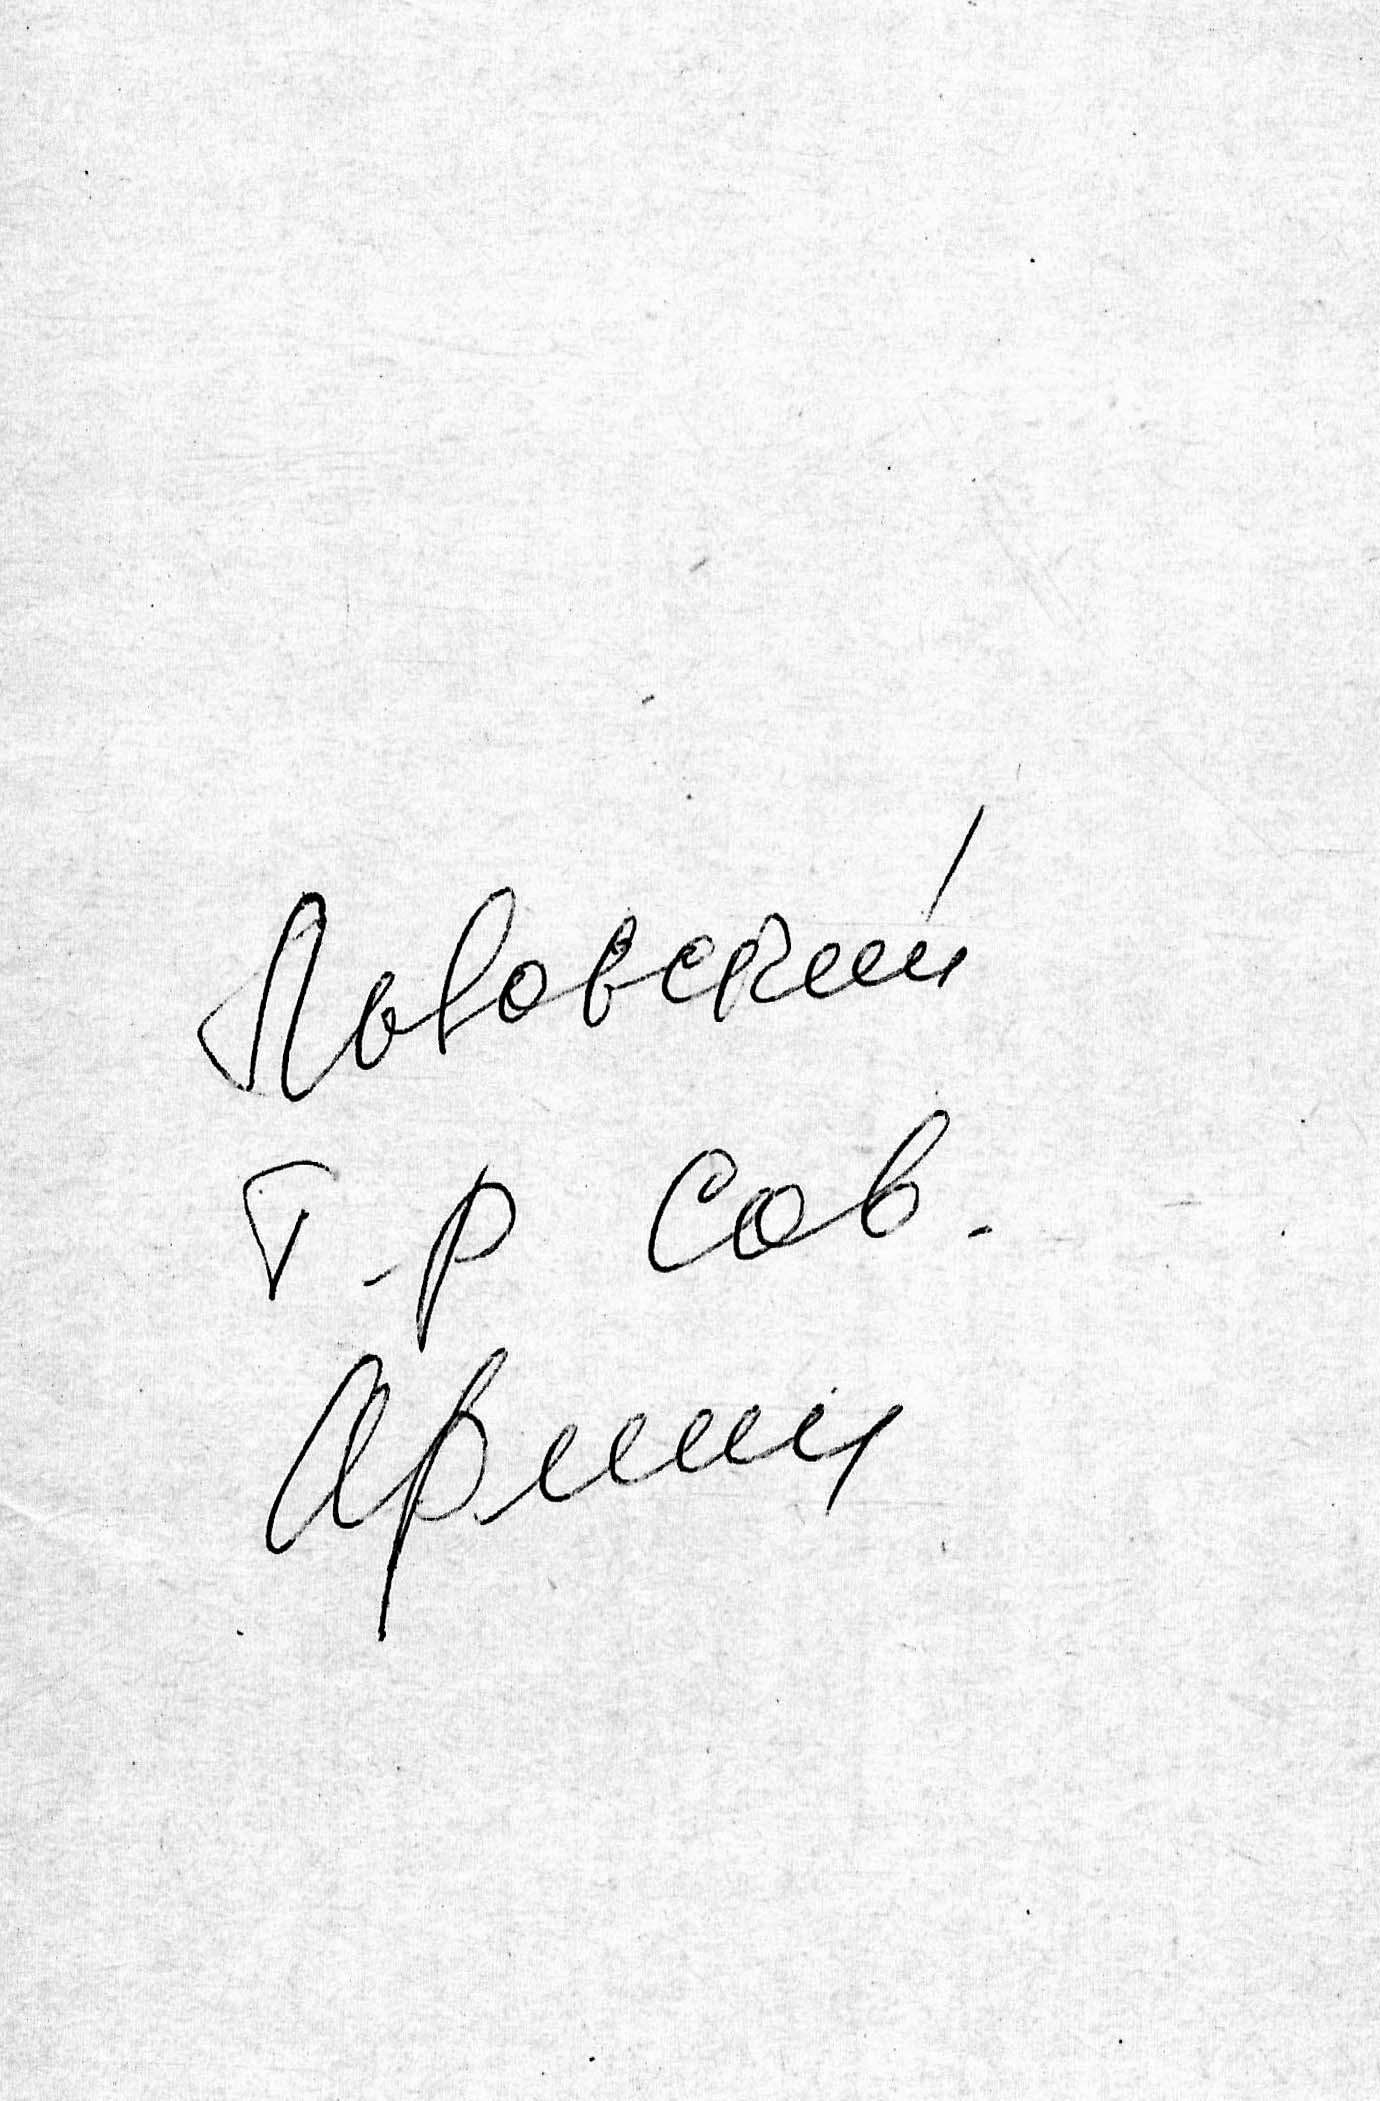 Львовский
т-р Сов.
Армии